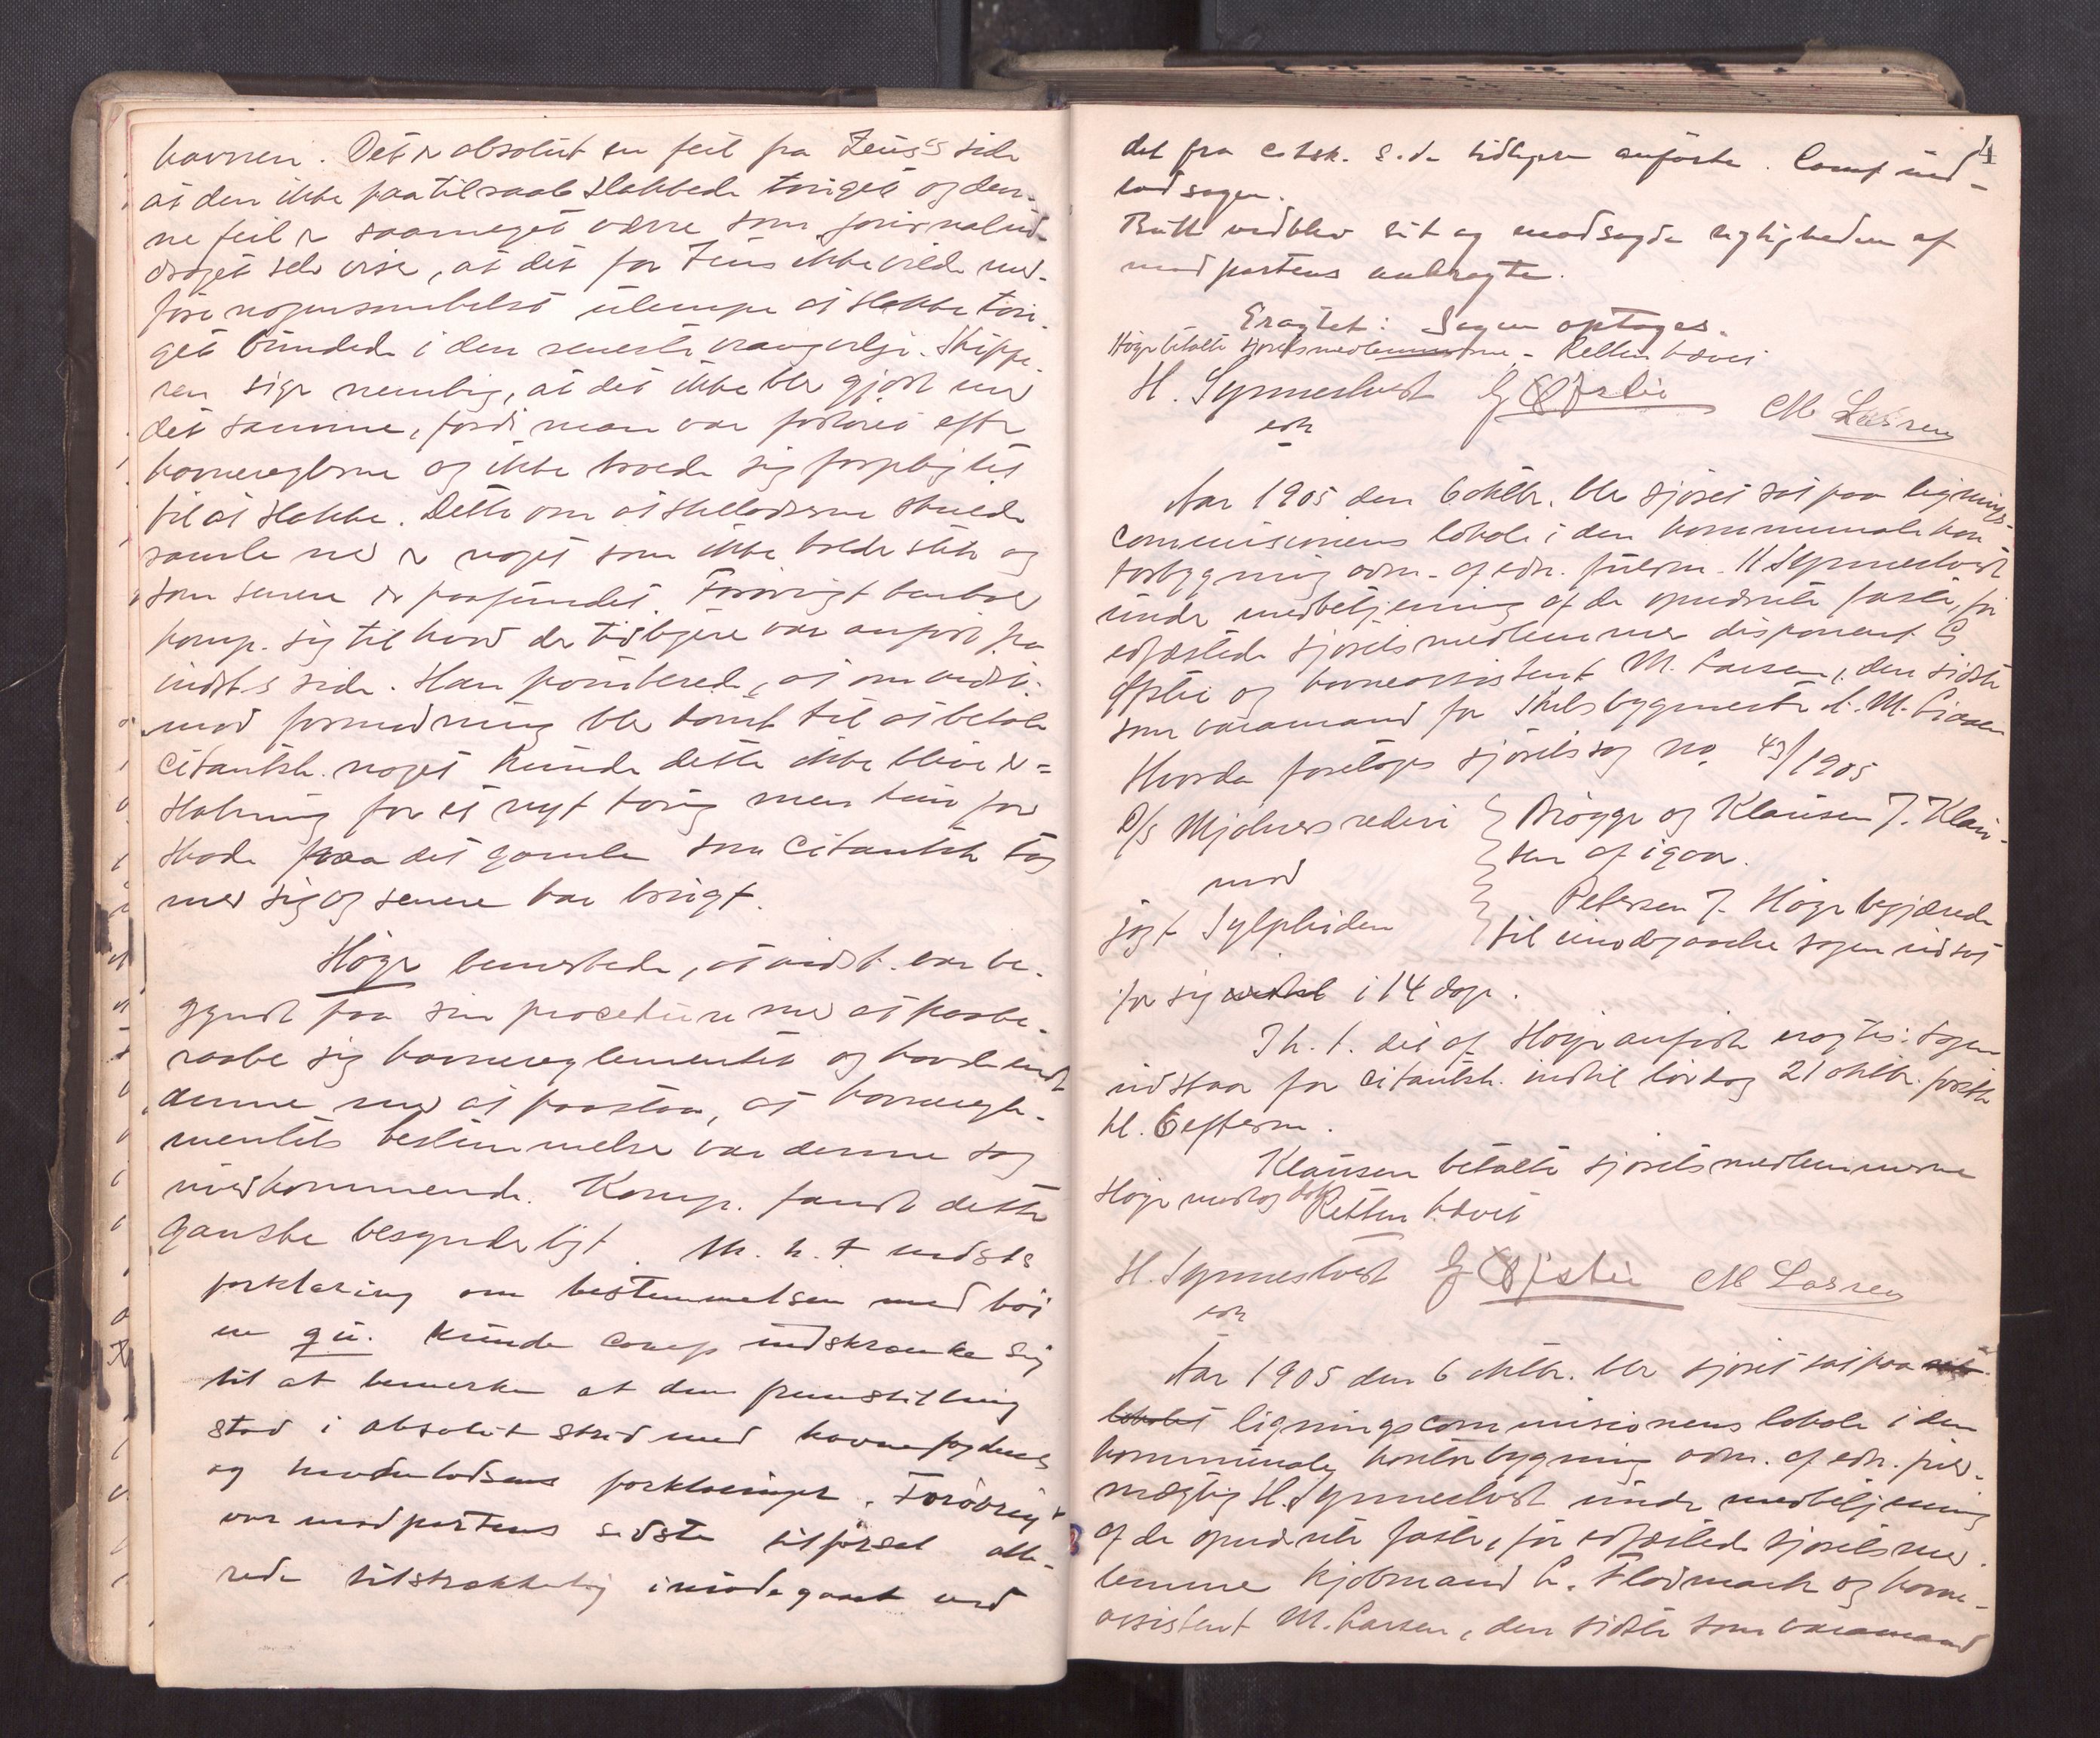 havnen. Det er absolut en feil fra Zeus's side
at den ikke paa tilraab slakkede touget og den-
ne feil er saameget værre som journalud-
draget selv viser, at det for Zeus ikke vilde med-
føre nogensomhelst ulempe at slakke tou-
get bundede i den reneste vrangvilje. Skippe-
ren siger nemlig, at det ikke blev gjort med
det samme, fordi man var fortøiet efter
havnereglerne og ikke troede sig forpligtet
til at slakke. Dette om at skellodserne skulde
samle ned er noget som ikke holder stik og
som senere er paafundet. Forøvrigt henholdt
komp. sig til hvad der tidligere var anført fra
indst.s side. Han paaberobede, at om indst.
mod formodning blev dømt til at betale
citantsk. noget kunde dette ikke blive er-
statning for et nyt toug men kun for
skade paa det gamle som citantsk tog
med sig og senere har brugt.
Høyer bemerkede, at indst. var be-
gyndt paa sin procedure med at paabe-
raabe sig havnereglementet og havde endt
denne med at paastaa, at havneregle-
mentets bestemmelser var denne sag
uvedkommende. Komp. fandt dette
ganske besynderligt. M. h. t. indsts
forklaring om bestemmelsen med bøi
en qu. kunde comp indskrænke sig
til at bemerke at den fremstilling
stod i absolut strid med havnefogdens
og havnelodsens forklaringer. Forøvrigt
var modpartens sidste tilførsel alle-
rede tilstrækkelig imødegaaet ved
4
det fra citsk. side tidligere anførte. Comp ind-
lod sagen.
Bull vedblev sit og modsagde rigtigheden af
modpartens anbragte.
Eragtet: Sagen optages.
Høyer betalte sjøretsmedlemmerne - Retten hævet
H. Symmestvedt G Østlie M Larsen
edr
Aar 1905 den 6 oktbr. blev sjøret sat paa lignings-
commisionens lokale i den kommunale kon
torbygning adm. af edr. fuldm. H Symmestvedt
under medbetjening af de opnævnte faste, før
edfæstede sjøretsmedlemmer disponent G
Østlie og havneassistent M. Larsen, den sidste
som varamand for skibsbygmester
Hvorda foretoges sjøretssag no. 43/1905
D/S Mjølners rederi Brøgger og Klausen J. Klau-
sen af igaar.
mod
jagt Sylphiden Petersen J. Høyer begjærede
til imødegaaelse sagen udsat
for sig indtil i 14 dage.
I h. t. det af Høyer anførte eragtes: Sagen
udstaar for citantsk. indtil lørdag 21 oktbr. førstk
kl. 6 efterm.
Klausen betalte sjøretsmedlemmerne
Høyer modtog dok. Retten hævet
H. Symmestvedt G Østlie M Larsen
edr
Aar 1905 den 6 oktbr. blev sjøret sat paa
lokalet ligningscommisionens lokale i den
kommunale kontorbygning adm. af edr. fuld-
mægtig H. Symmestvedt under medbetjening
af de opnævnte faste, før edfæstede sjøretsmed-
lemmer kjøbmand C. Flodmark og havne-
assistent M. Larsen, den sidste som varamand